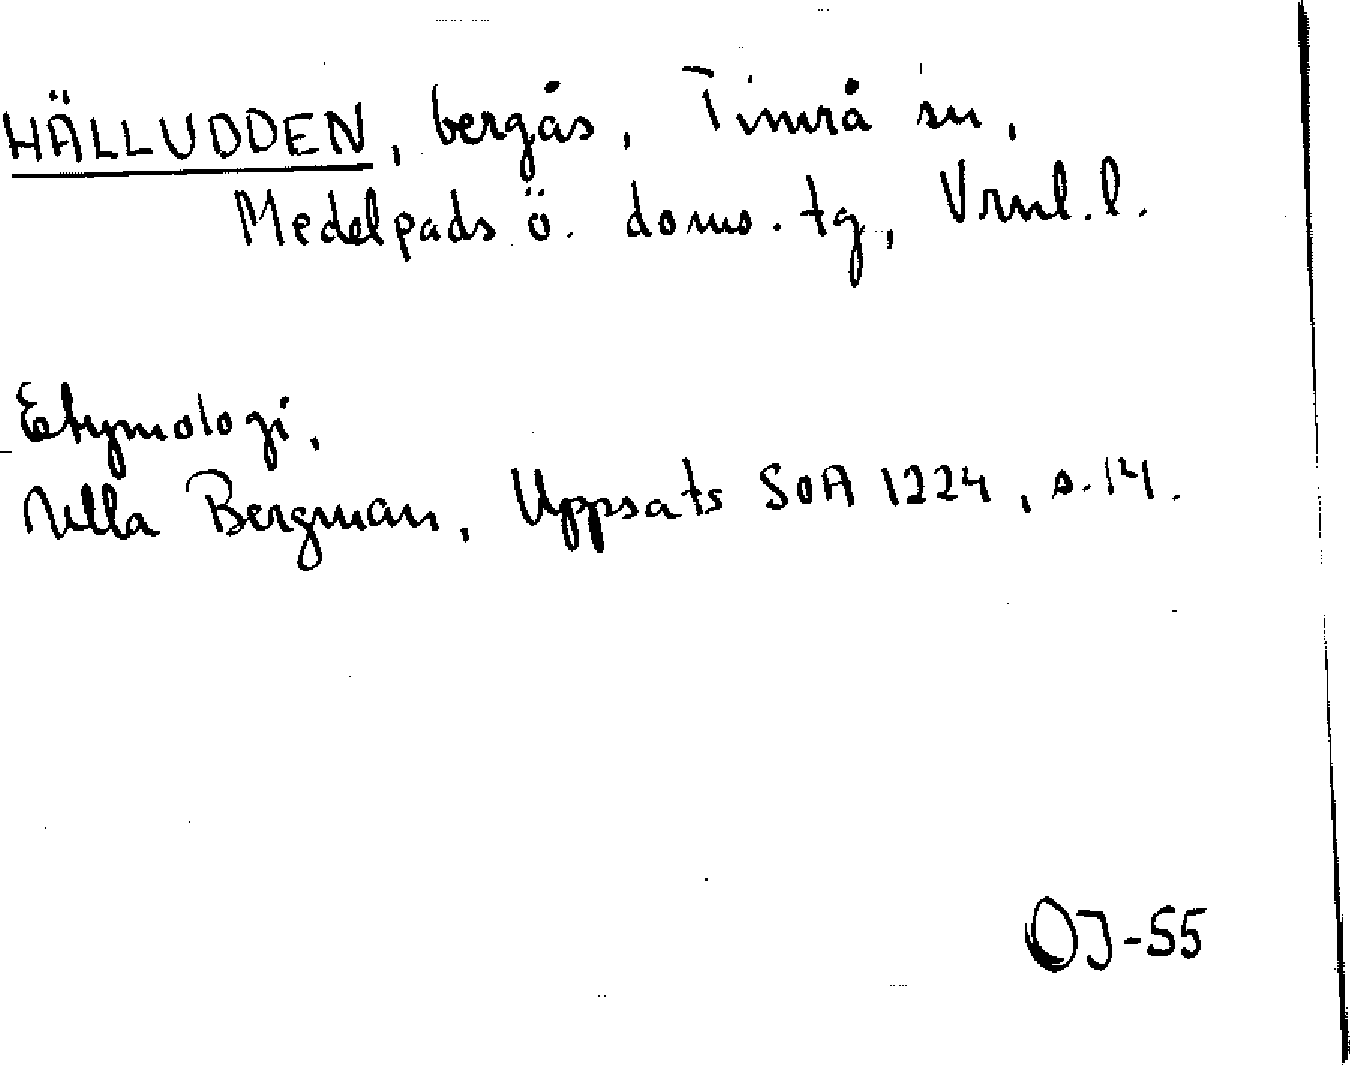 HÄLLUDDEN, bergås, Timrå sn,
Medelpads ö. doms. tg, Vrnl. l.
Etymologi,
Ulla Bergman, Uppsats SOA 1224, s. 14.
OJ-55